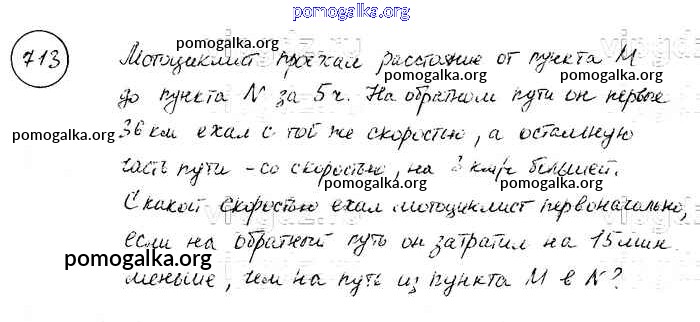 pomogalka.org
713
Мотоциклист проехал расстояние от пункта М
pomogalka.org pomogalka.org
до пункта N за 5 ч. На обратном пути он первые
pomogalka.org
36 км ехал с той же скоростью, а остальную
pomogalka.org
часть пути - со скоростью, на 3 км/ч большей.
pomogalka.org
С какой скоростью ехал мотоциклист первоначально,
pomogalka.org
если на обратный путь он затратил на 15 мин
pomogalka.org
меньше, чем на путь из пункта М в N?
pomogalka.org